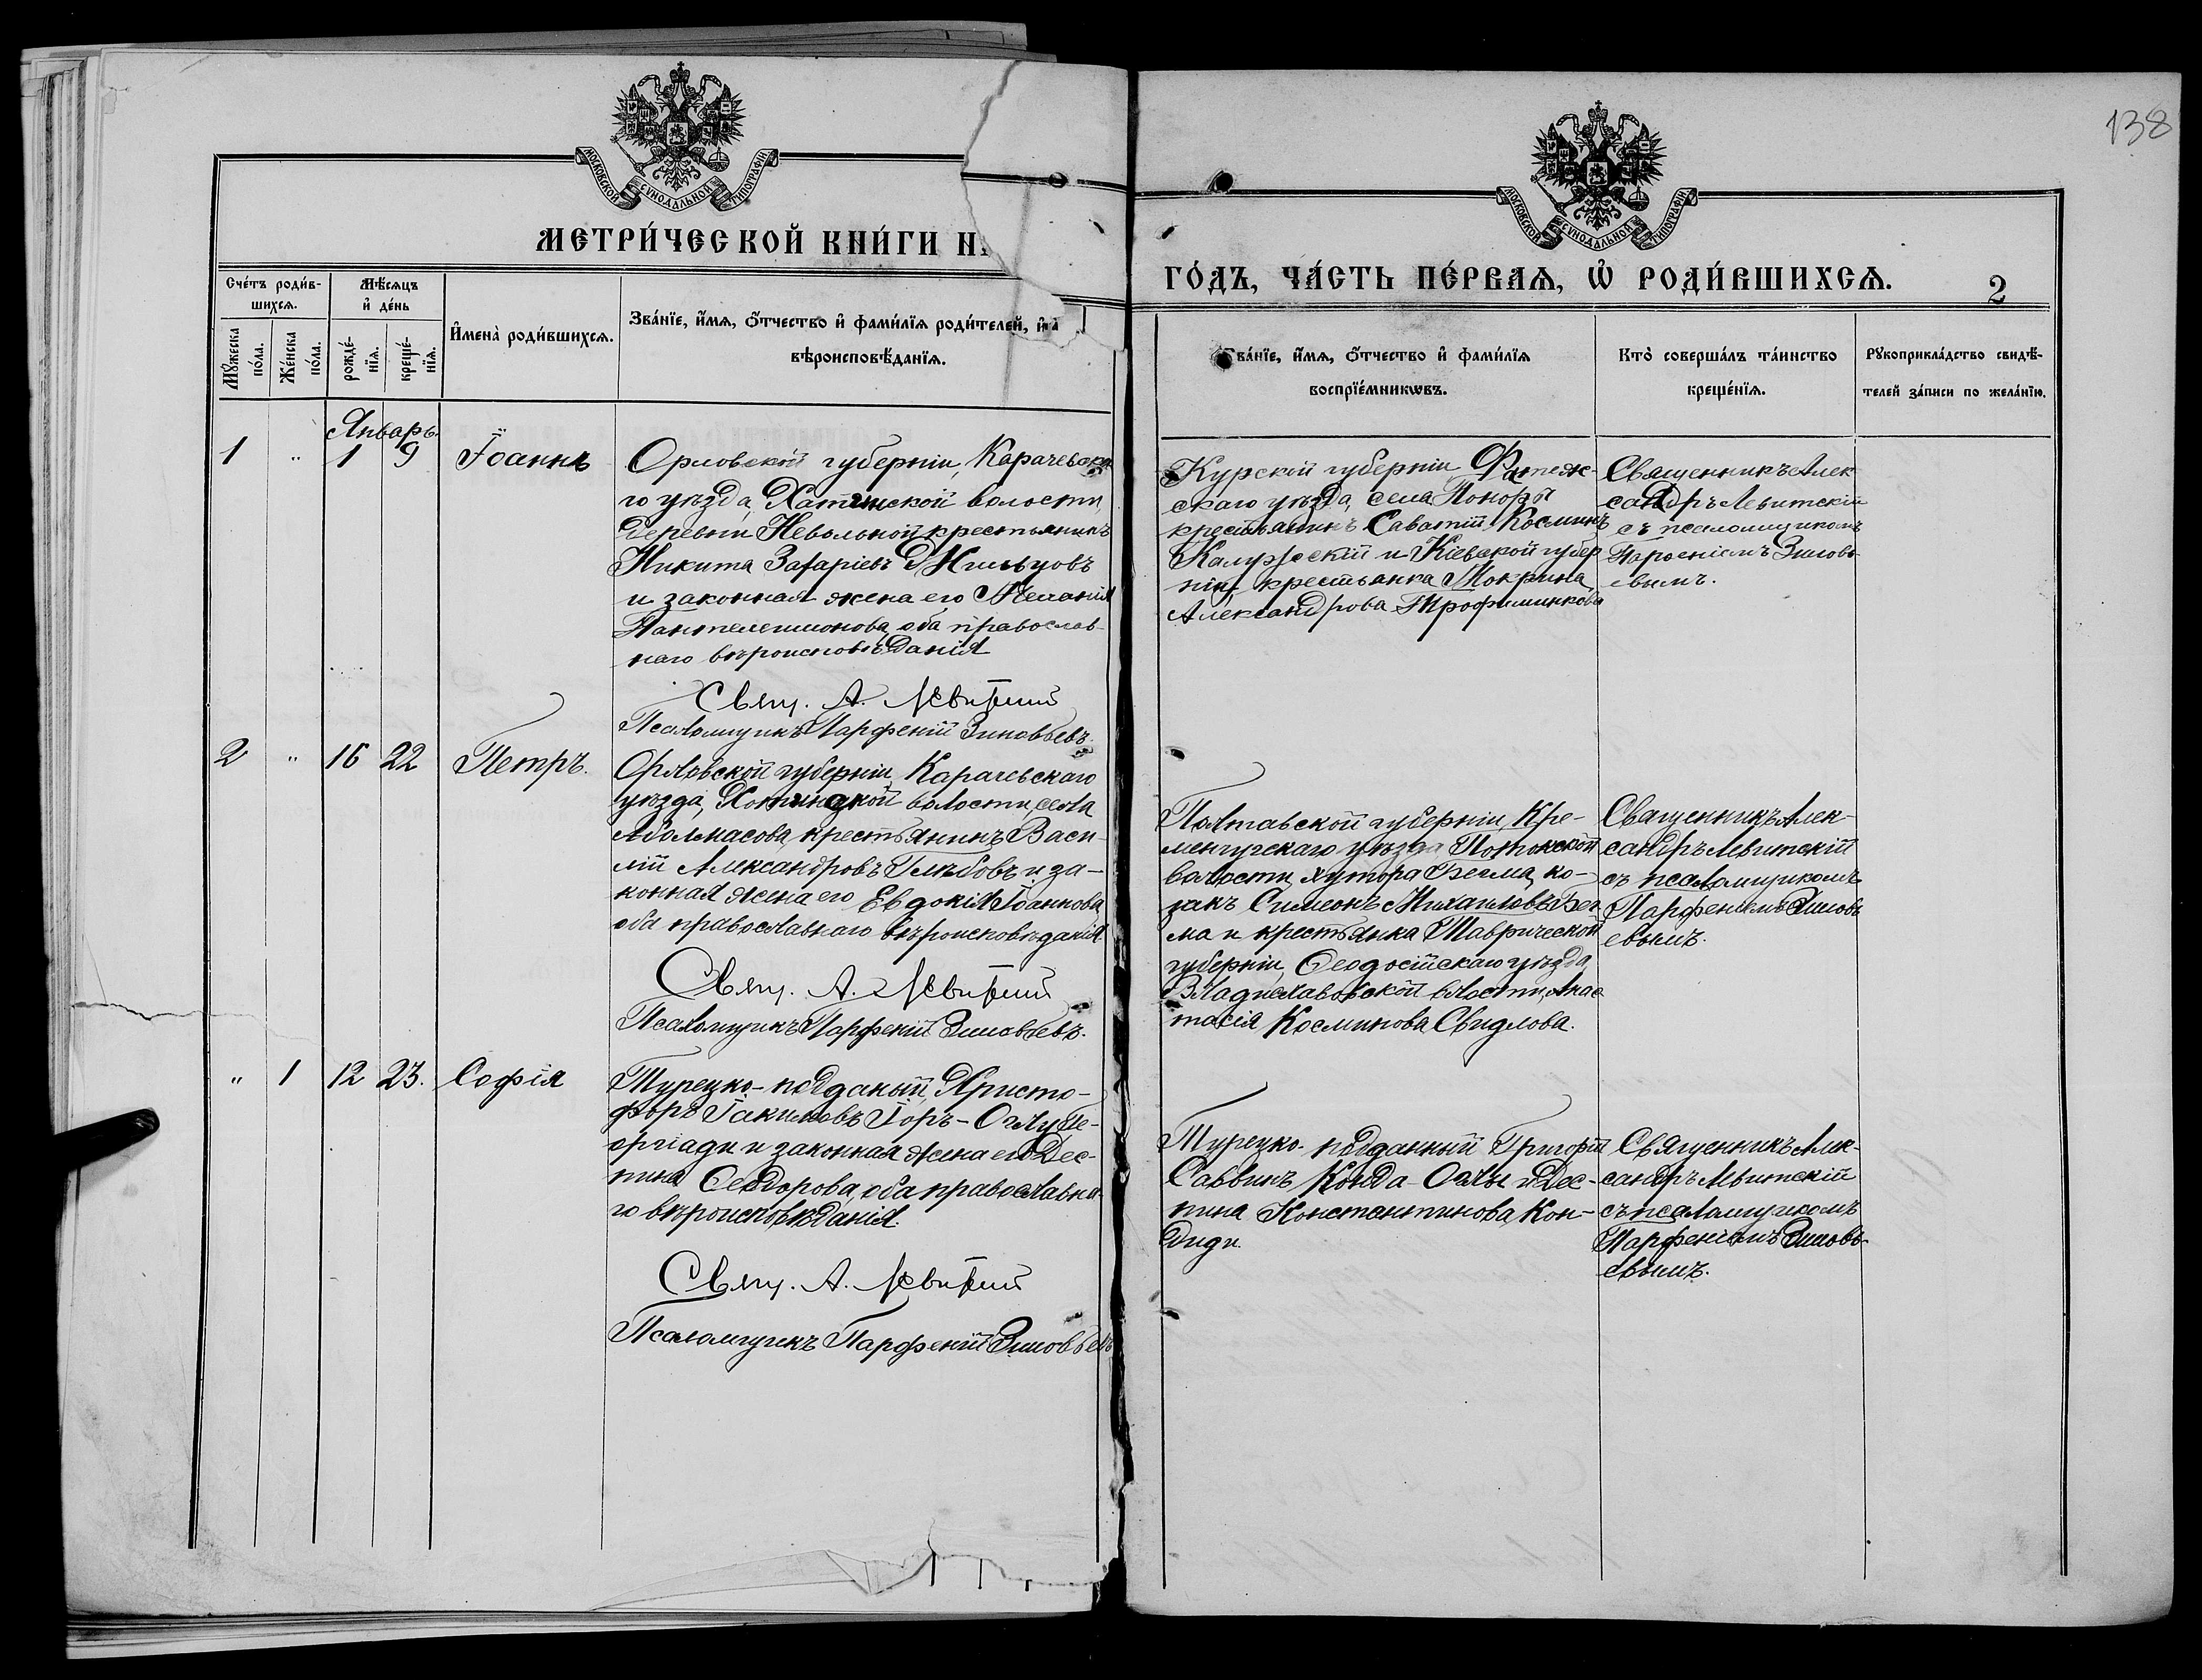 138
МОСКОВСКОЙ СѴНОДАЛЬНОЙ ТИПОГРАФІИ
МОСКОВСКОЙ СѴНОДАЛЬНОЙ ТИПОГРАФІИ
МЕТРИ́ЧЕСКОЙ КНИ́ГИ Н
ГО́ДЪ, ЧА́СТЬ ПЕ́РВАѦ, Ѡ҆ РОДИ́ВШИХСѦ.
2
Сче́тъ роди́в-
шихсѧ.
Мѣ́сѧцъ
и҆ де́нь
Мꙋ́жеска
по́ла.
Же́нска
по́ла.
рожде́-
нїѧ.
креще́-
нїѧ.
И҆мена̀ роди́вшихсѧ.
Зва́нїе, и҆́мѧ, ѻ҆́тчество и҆ фами́лїѧ роди́телей, и҆
вѣроисповѣ́данїѧ.
ва́нїе, и҆́мѧ, ѻ҆́тчество и҆ фами́лїѧ
воспрїе́мникѡвъ.
Кто̀ соверша́лъ та́инство
креще́нїѧ.
Рꙋкоприкла́дство свидѣ́-
телей за́писи по жела́нїю.
Январь.
1 " 1 9 Іоаннъ
Орловской губерніи, Карачевска
го уѣзда, Хотынской волости,
деревни Невольной крестьянинъ
Никита Захаріевъ
и законная жена его Меланія
Пантелеимонова, оба православ-
наго вѣроисповѣданія
Свящ. А. Левитскій
Псаломщикъ Парфеній Зиновьевъ.
Курской губерніи Фатеж-
скаго уѣзда, села Поноры
крестьянинъ Саватій Косминъ
Калужскій и Кіевской губер
ніи, крестьянка Мокрина
Александрова Трофиминкова
Священникъ Алек
сандръ Левитскій
съ псаломщикомъ
Парѳеніемъ Зиновь-
евымъ.
2 " 16 22 Петръ.
Орловской губерніи, Карачевскаго
уѣзда, Хотынской волости, села
Абалмасова, крестьянинъ Васи-
лій Александровъ Глѣбовъ и за-
конная жена его Евдокія Іоаннова,
оба православнаго вѣроисповѣданія
Свящ. А. Левитскій
Псаломщикъ Парфеній Зиновьевъ.
Полтавской губерніи, Кре-
менчугскаго уѣзда Потокской
волости, хутора Бегма, ко-
закъ Симеонъ Михаиловъ Бег
ма и крестьянка Таврической
губерніи, Ѳеодосійскаго уѣзда
Владиславовской влости, Анас
тасія Косминова Свидлова.
Священникъ Алек-
сандръ Левитскій
съ псаломщикомъ
Парфеніемъ Зиновь
евымъ.
" 1 12 23. Софія
Турецко-подданый, Христо-
форъ Іакимовъ Горъ-Оглу Ге-
оргіади и законная жена его Дес-
пина Ѳеодорова, оба православна-
го вѣроисповѣданія.
Свящ. А. Левитскій
Псаломщикъ Парфеній Зиновьевъ
Турецко-подданный Григорій
Саввинъ Конда-Оглы и Дес-
пина Константинова Кон-
диди.
Священникъ Алек-
сандръ Левитскій
съ псаломщикомъ
Парфеніемъ Зиновь-
евымъ.